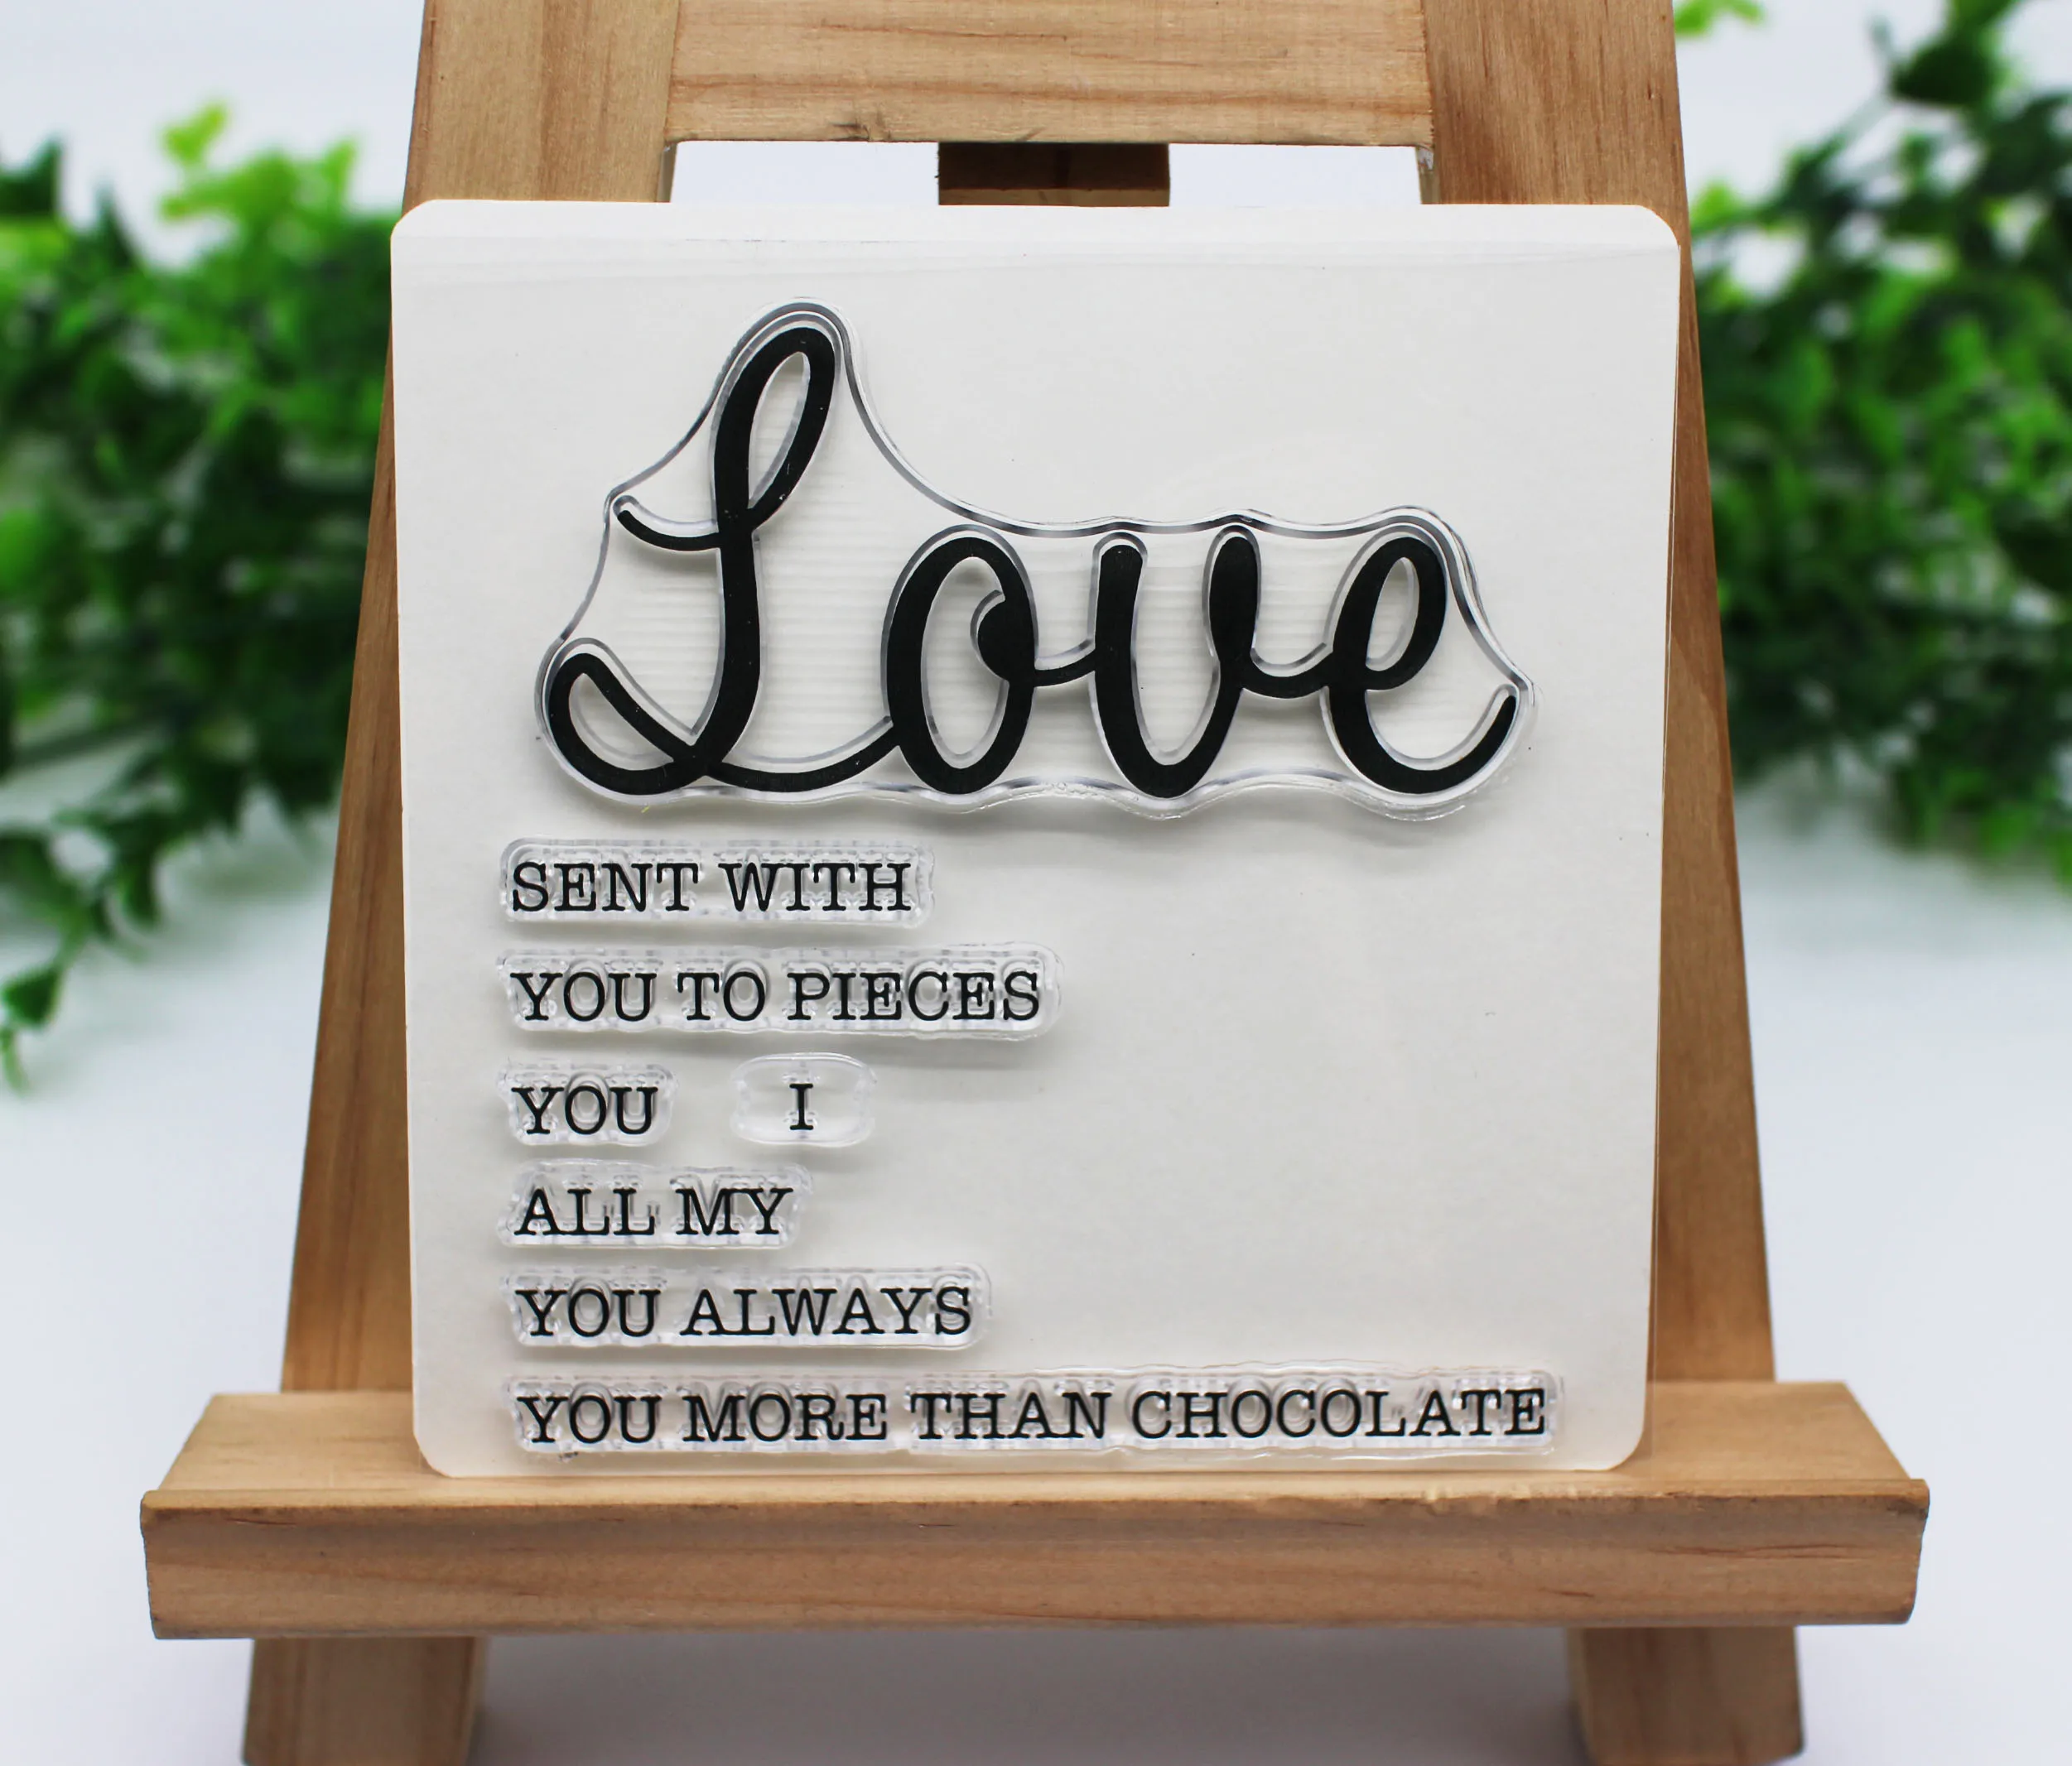 Love
SENT WITH
YOU TO PIECES
YOU I
ALL MY
YOU ALWAYS
YOU MORE THAN CHOCOLATE